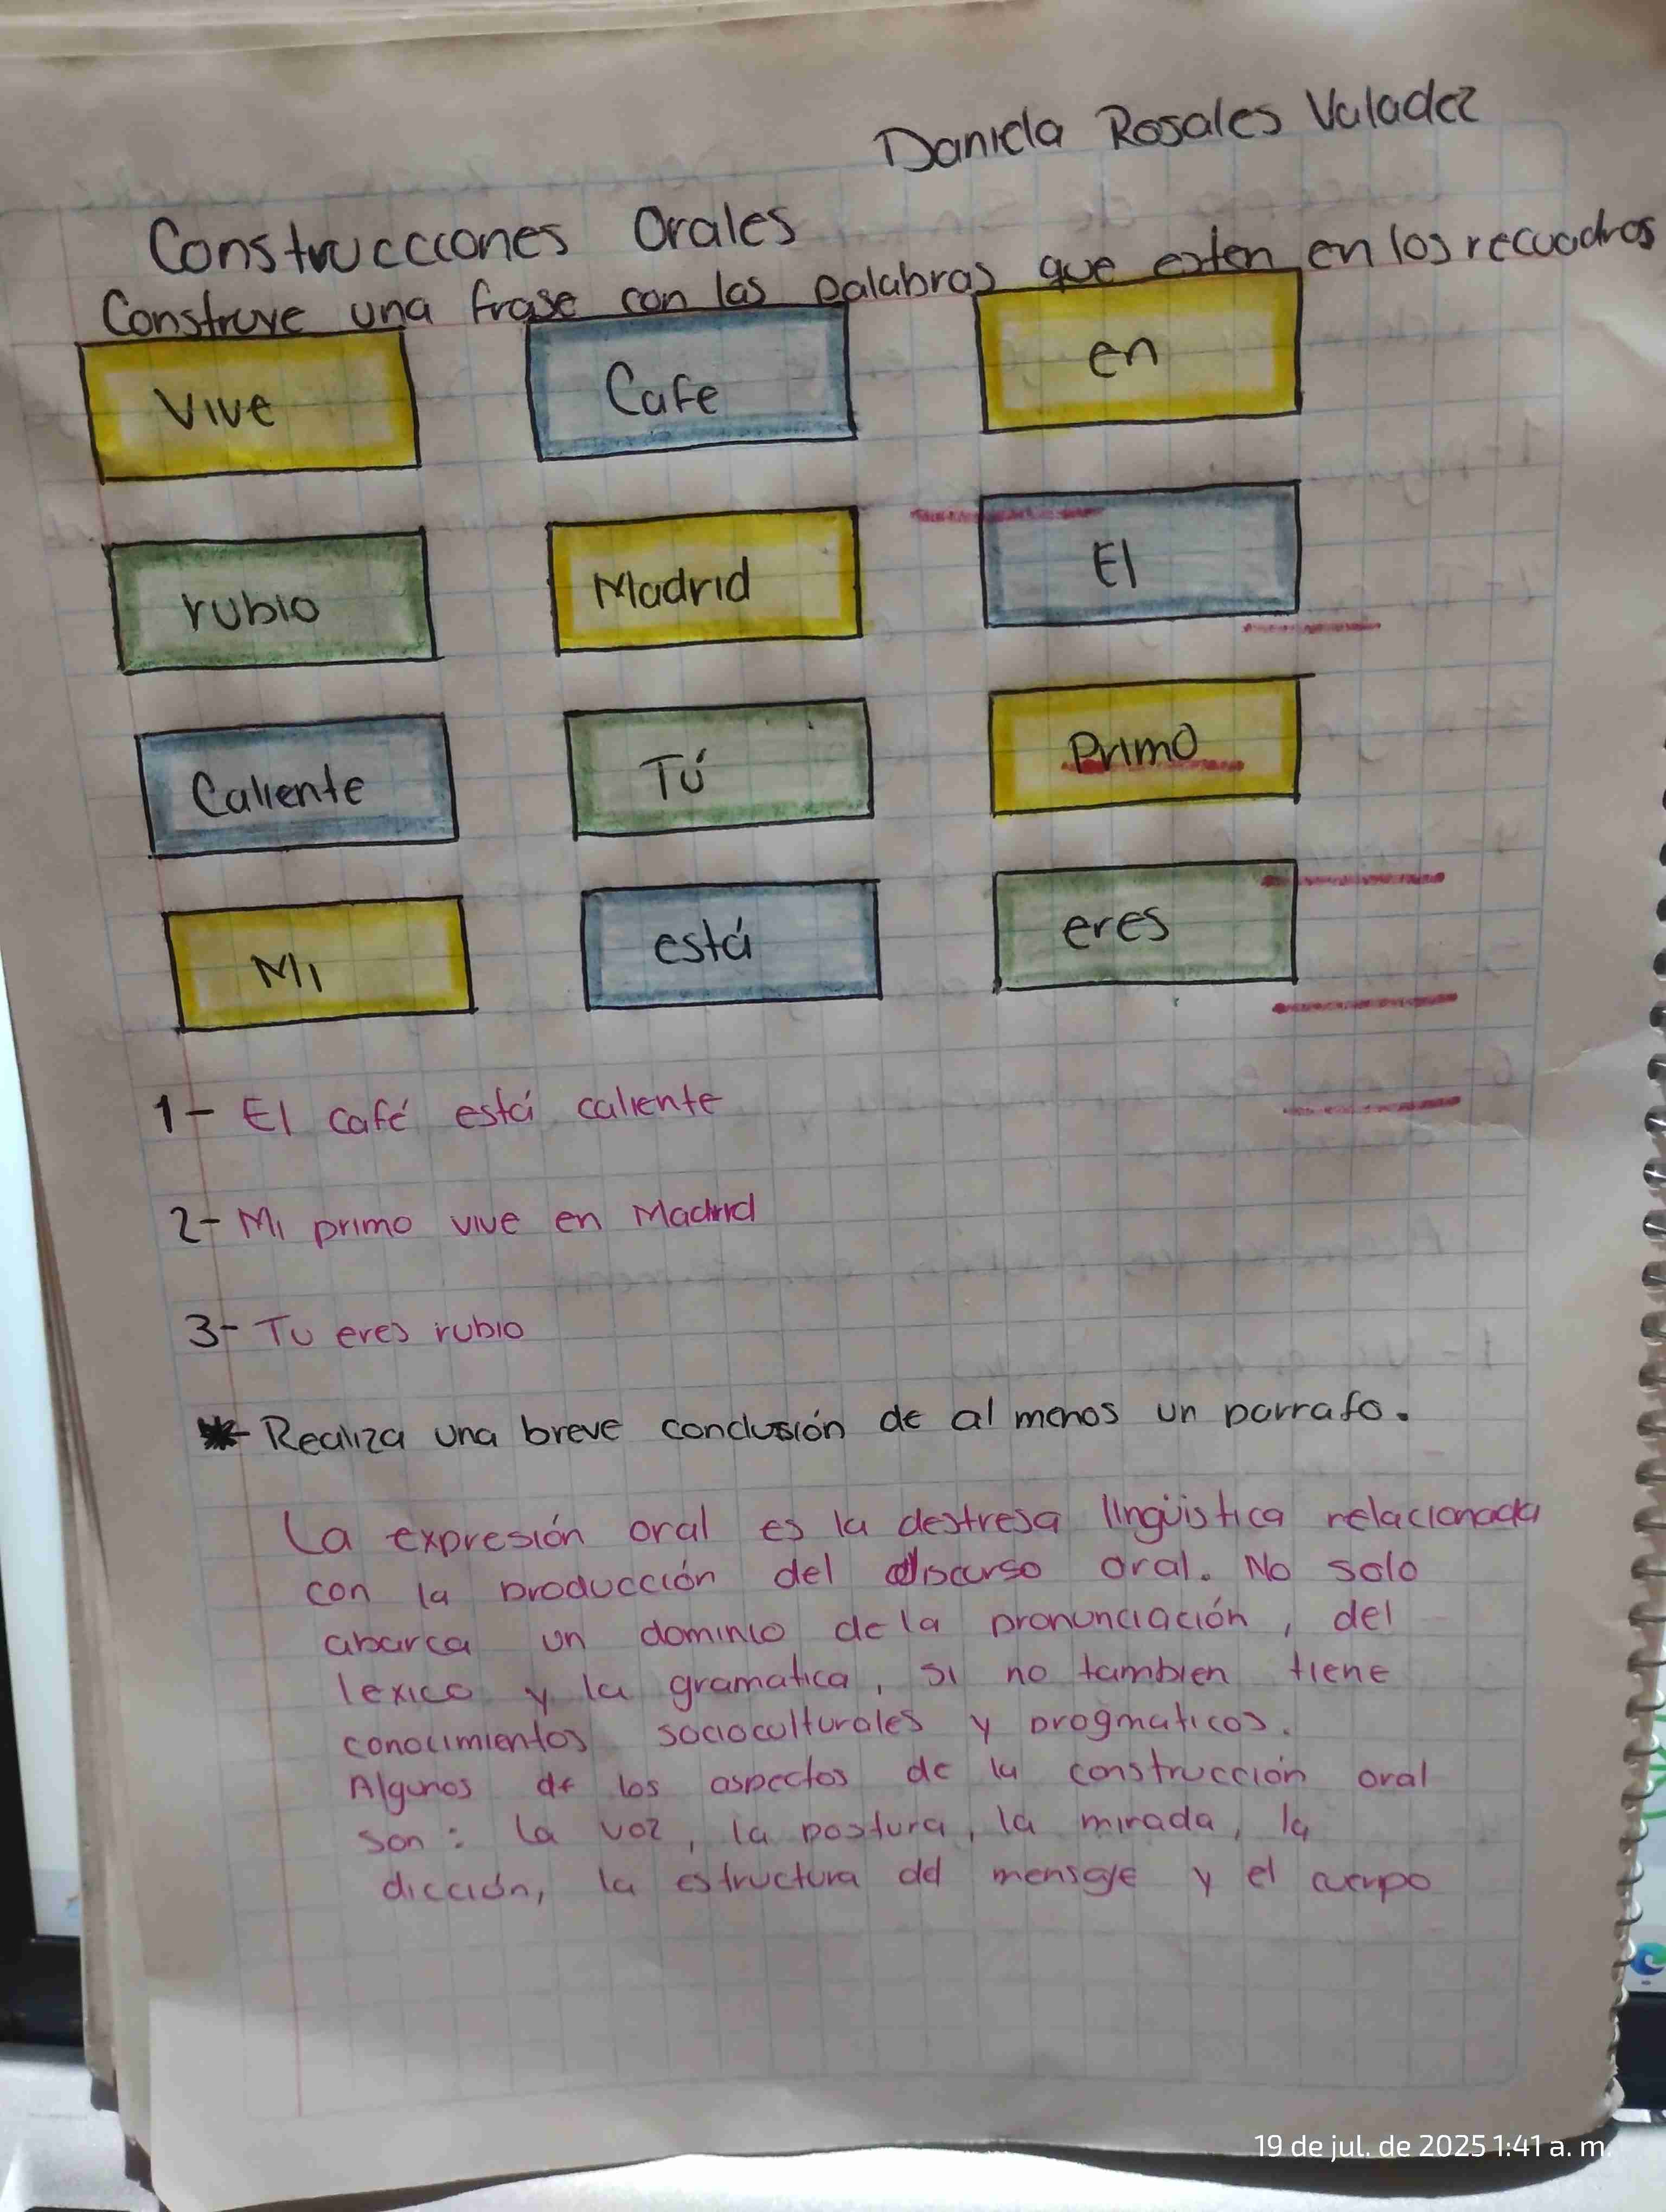 Daniela Rosales Valadez
Construcciones Orales
Construye una frase con las palabras que esten en los recuadros
Vive
Cafe
en
rubio
Madrid
El
Caliente
Tú
Primo
Mi
está
eres
1- El café está caliente
2- Mi primo vive en Madrid
3- Tu eres rubio
* Realiza una breve conclusión de al menos un parrafo.
La expresión oral es la destresa lingüistica relacionada
con la producción del discurso oral. No solo
abarca un dominio de la pronunciación, del
lexico y la gramatica, si no tambien tiene
conocimientos socioculturales y pragmaticos.
Algunos de los aspectos de la construcción oral
son: la voz, la postura, la mirada, la
dicción, la estructura del mensaje y el cuerpo
19 de jul. de 2025 1:41 a. m.